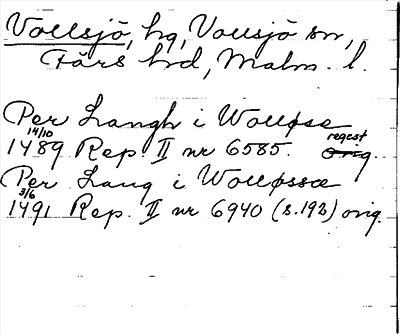 Vollsjö, hg, Vollsjö sn,
Färs hrd, Malm. l.
Per Langh i Wolløse
14/10 1489 Rep. II nr 6585. regest orig.
Per Lang i Wolløssæ
3/6 1491 Rep. II nr 6940 (s. 193) orig.